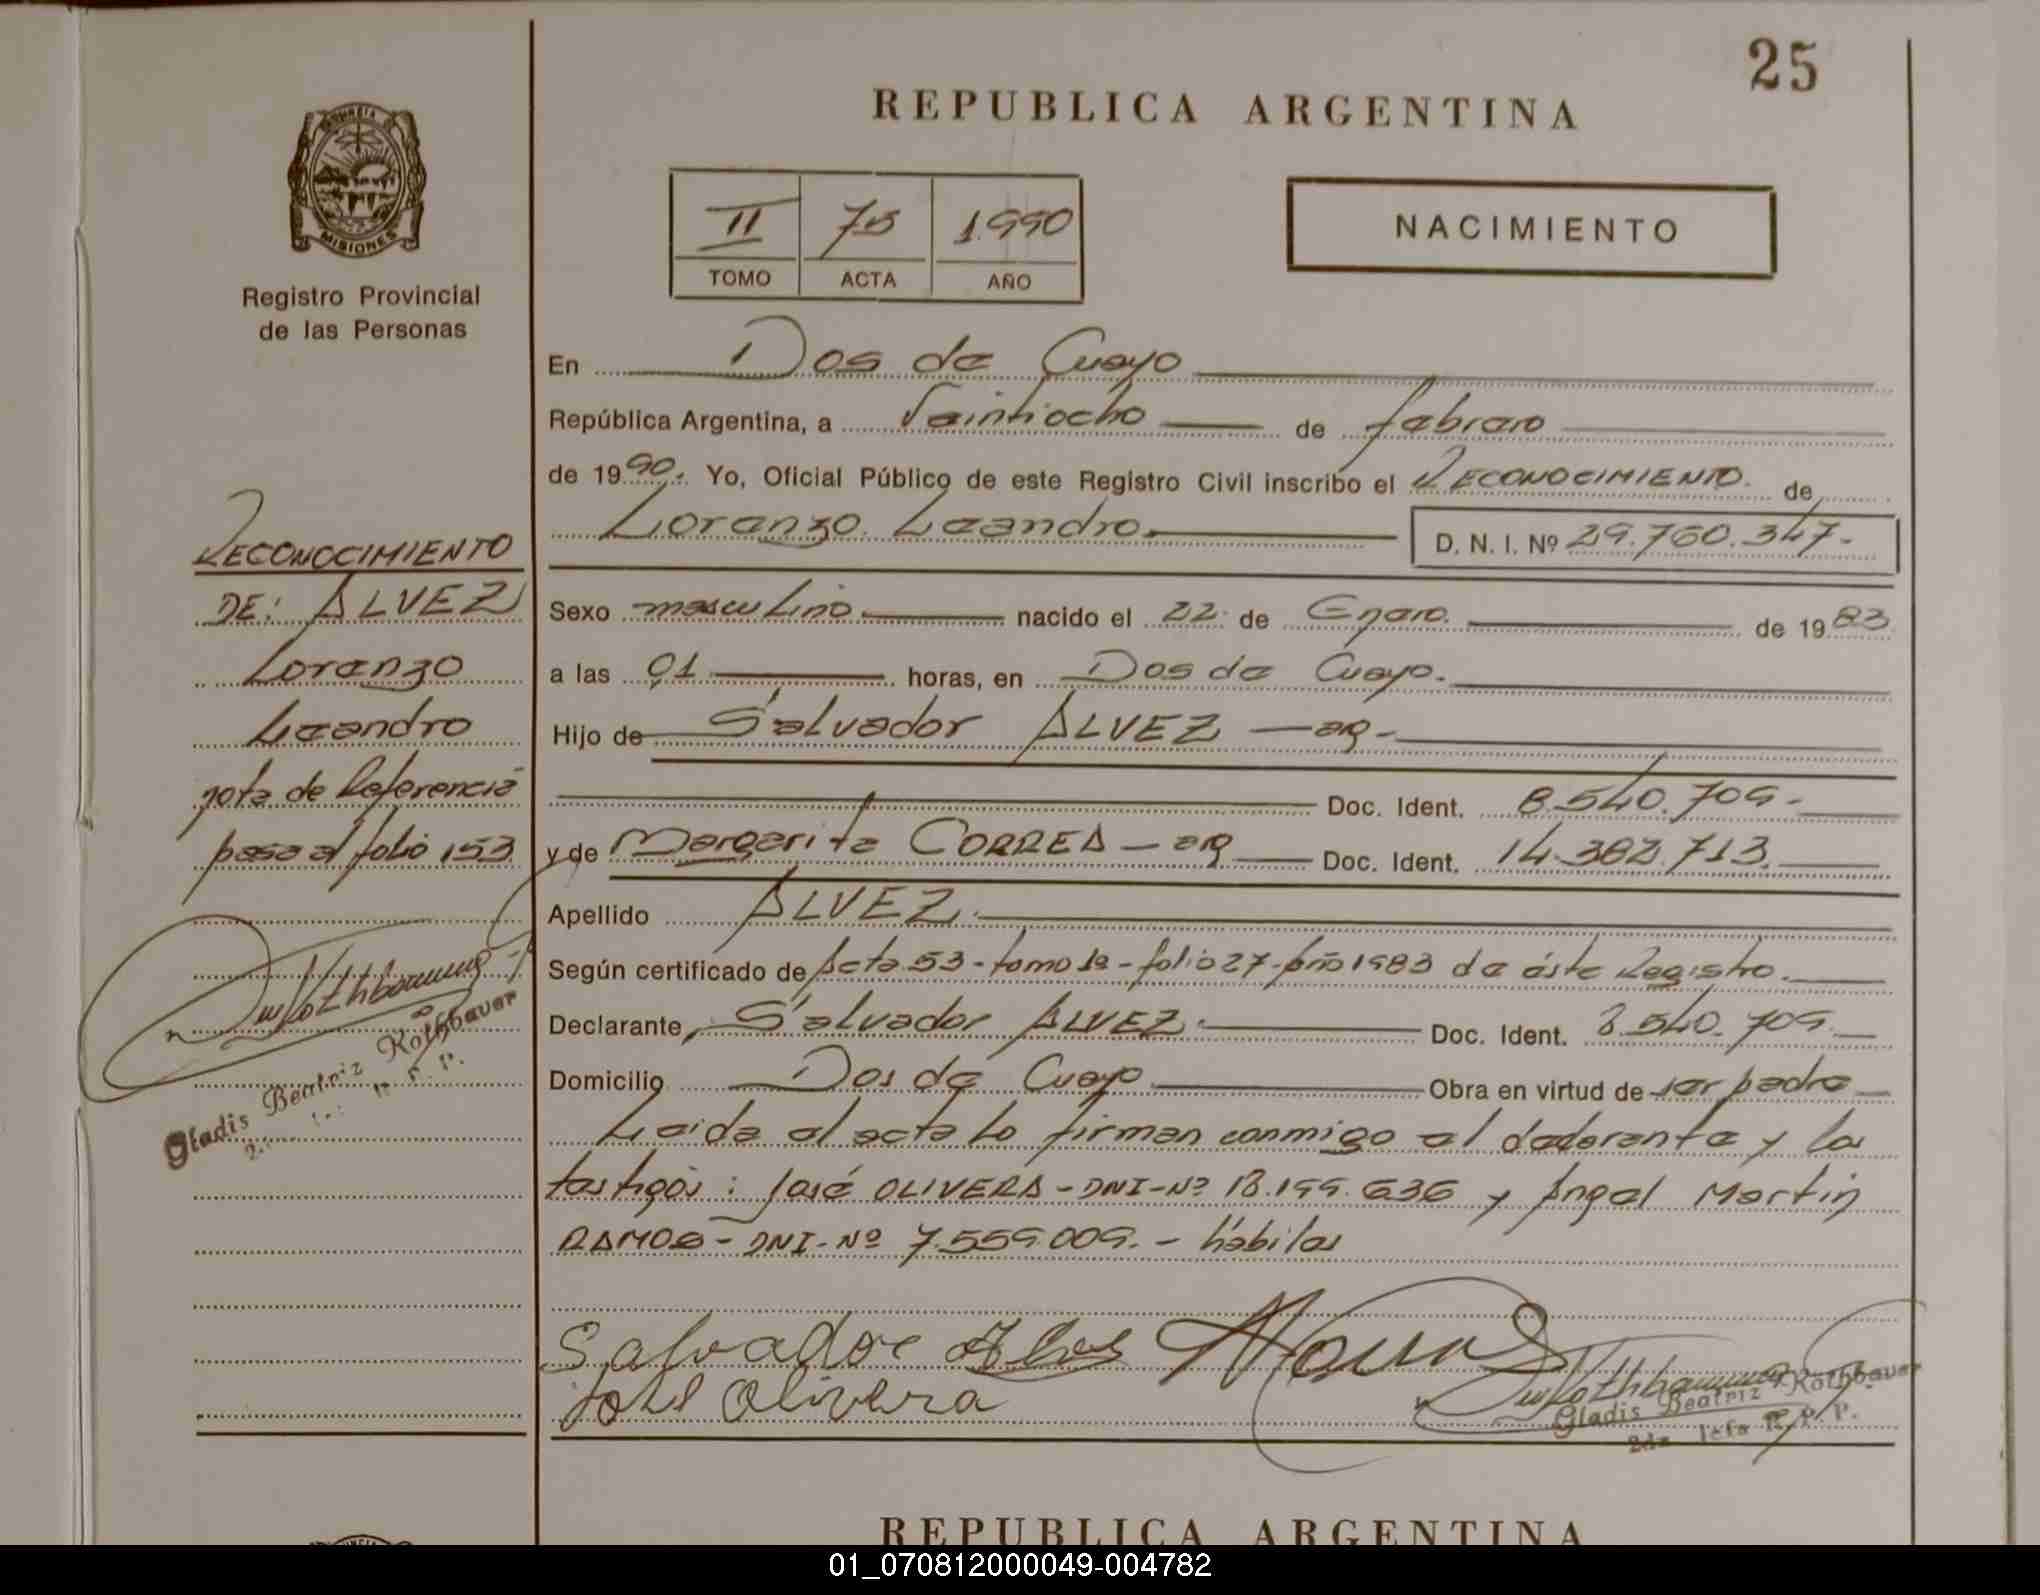 25
REPUBLICA ARGENTINA
PROVINCIA DE
MISIONES
Registro Provincial
de las Personas
II 75 1.990
TOMO ACTA AÑO
NACIMIENTO
RECONOCIMIENTO
DE: ALVEZ
Lorenzo
Leandro
nota de Referencia
pasa al folio 153
Gladis Beatriz Rothbauer
En Dos de Mayo
República Argentina, a Veintiocho de febrero
de 1990. Yo, Oficial Público de este Registro Civil inscribo el RECONOCIMIENTO. de
Lorenzo Leandro. D. N. I. Nº 29.760.347.-
Sexo masculino nacido el 22 de Enero. de 1983
a las 01 horas, en Dos de Mayo.
Hijo de Salvador ALVEZ — arg -
Doc. Ident. 8.540.709.-
y de Margarita CORREA - arg Doc. Ident. 14.382.713.
Apellido ALVEZ.
Según certificado de Acta 53 - tomo 1º - folio 27 - año 1983 de éste Registro.
Declarante, Salvador ALVEZ. Doc. Ident. 8.540.709.
Domicilio Dos de Mayo Obra en virtud de ser padre
Leída el acta lo firman conmigo el declarante y los
testigos: José OLIVERA - DNI - Nº 18.199.636 y Angel Martin
RAMOS - DNI - Nº 7.559.009. - hábiles
Salvador Alves
José Olivera
Gladis Beatriz Rothbauer
2da Jefa R. P. P.
REPUBLICA ARGENTINA
01_070812000049-004782